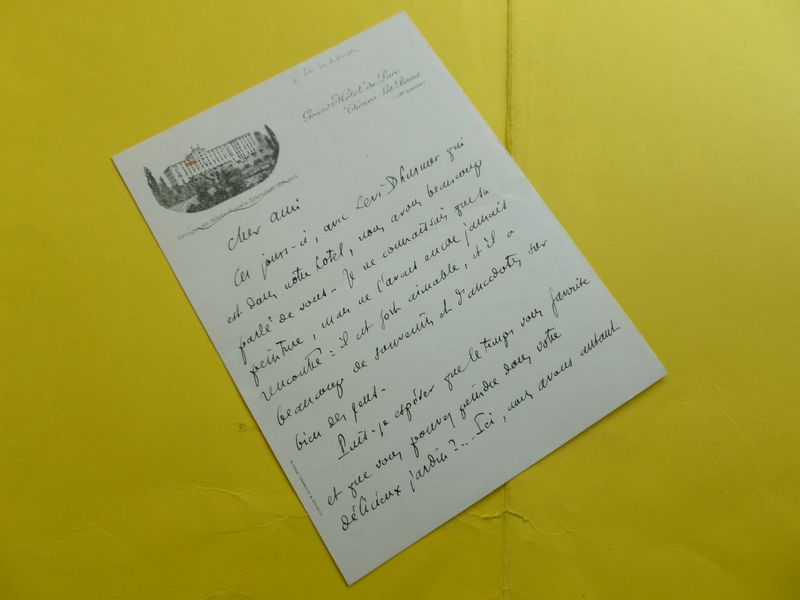 Grand Hôtel du Parc
Thonon-les-Bains
Cher ami
Ces jours-ci, avec Levi-Dhurmer qui
est dans notre hotel, nous avons beaucoup
parlé de vous. Je ne connaissais que sa
peinture, mais ne l'avais encore jamais
rencontré : il est fort aimable, et il a
beaucoup de souvenirs et d'anecdotes sur
bien des gens.
Puis-je espérer que le temps vous favorise
et que vous pouvez peindre dans votre
délicieux jardin ?... Ici, nous avons autant